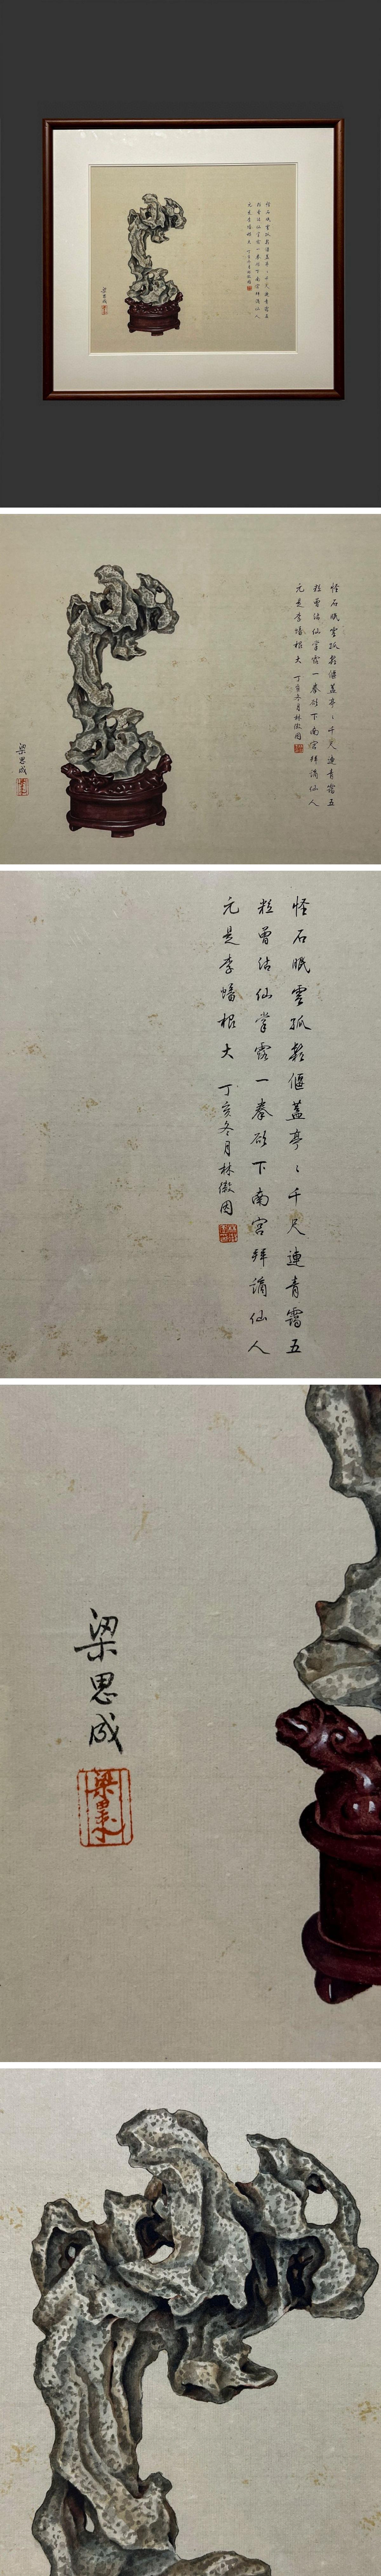 怪石眠雲孤鬆偃蓋亭〻千尺連青靄五
粒曾沾仙掌露一拳欲下南宮拜謫仙人
元是李蟠根大 丁亥冬月林徽因
梁思成
怪石眠雲孤鬆偃蓋亭〻千尺連青靄五
粒曾沾仙掌露一拳欲下南宮拜謫仙人
元是李蟠根大 丁亥冬月林徽因
梁思成
怪石眠雲孤鬆偃蓋亭〻千尺連青靄五
粒曾沾仙掌露一拳欲下南宮拜謫仙人
元是李蟠根大 丁亥冬月林徽因
梁思成